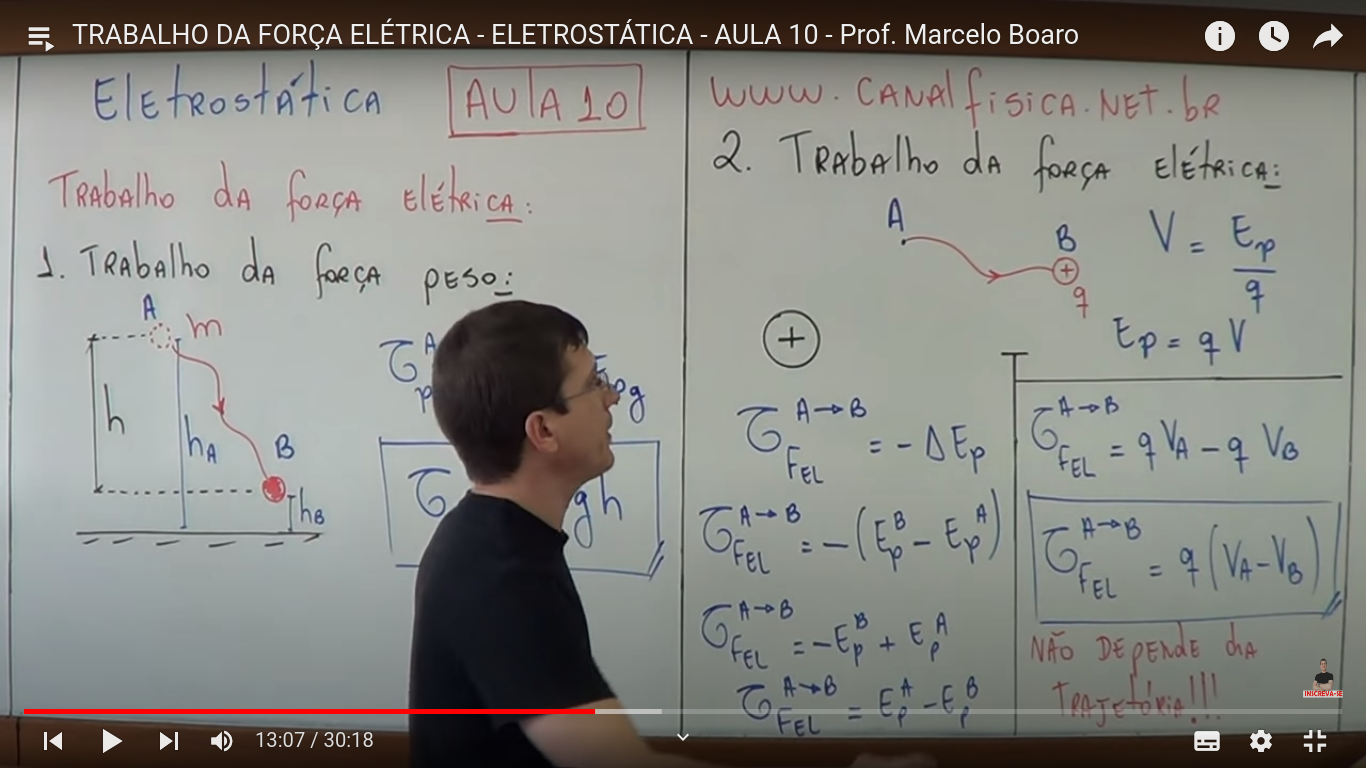 TRABALHO DA FORÇA ELÉTRICA - ELETROSTÁTICA - AULA 10 - Prof. Marcelo Boaro
Eletrostática
AULA 10
Trabalho da força elétrica:
1. Trabalho da força peso:
A
m
h
hA
B
hB
gh
www.canalfisica.net.br
2. Trabalho da força elétrica:
A
B
+
q
+
V = Ep/q
Ep = qV
τ A→B FEL = -ΔEp
τ A→B FEL = -(Ep B - Ep A)
τ A→B FEL = -Ep B + Ep A
τ A→B FEL = Ep A - Ep B
τ A→B FEL = qVA - qVB
τ A→B FEL = q(VA-VB)
NÃO DEPENDE DA
TRAJETÓRIA!!!
INSCREVA-SE
13:07 / 30:18